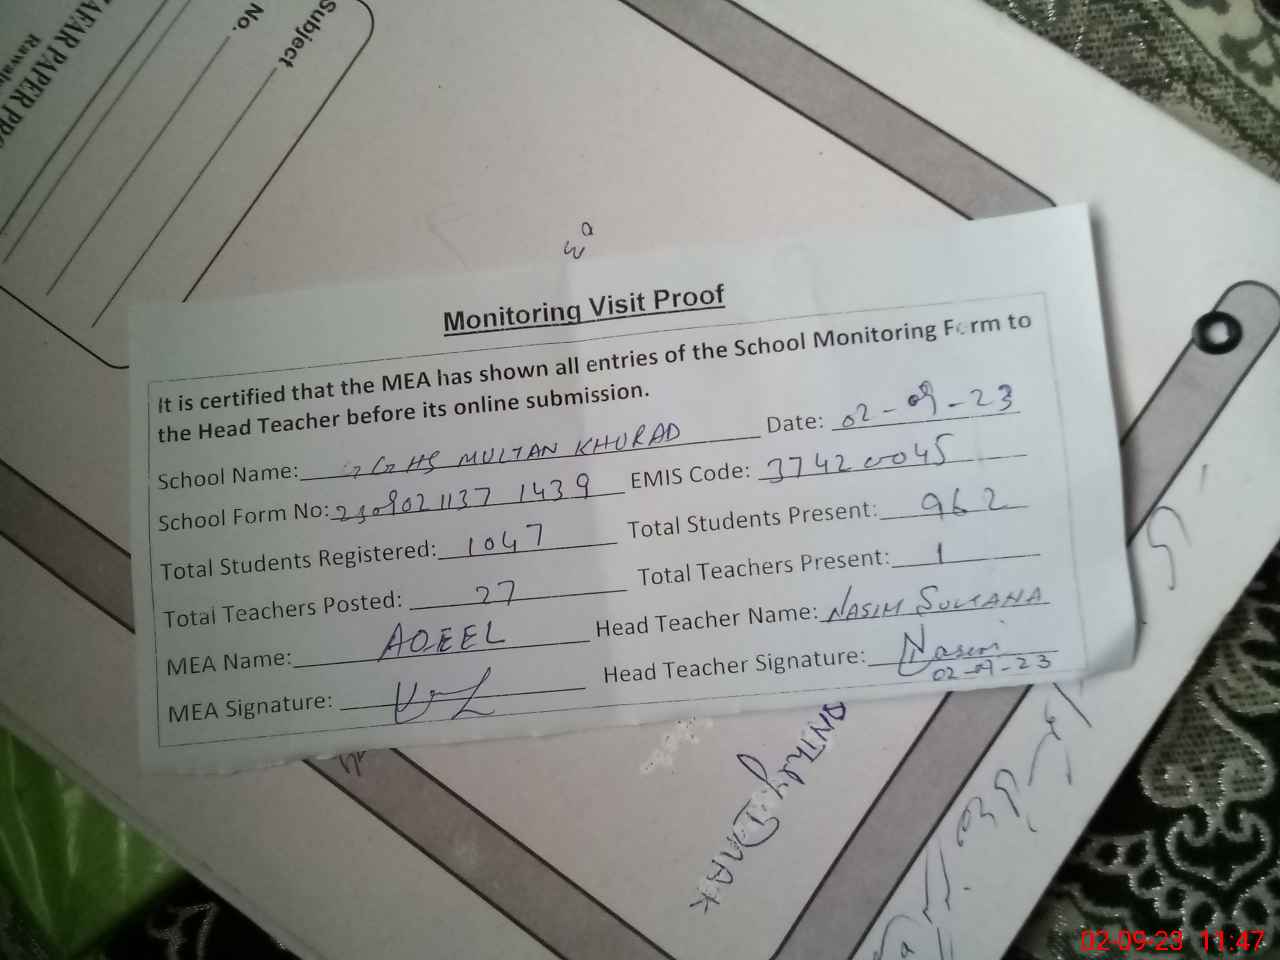 Subject
No.
AFAR PAPER PRO
Rawal
Monitoring Visit Proof
It is certified that the MEA has shown all entries of the School Monitoring Form to
the Head Teacher before its online submission.
School Name: GGHS MULTAN KHURAD Date: 02-09-23
School Form No: 230902 1137 1439 EMIS Code: 37420045
Total Students Registered: 1047 Total Students Present: 962
Total Teachers Posted: 27 Total Teachers Present: 1
MEA Name: AQEEL Head Teacher Name: NASIM SULTANA
MEA Signature: Head Teacher Signature: Nasim
02-09-23
02-09-23 11:47